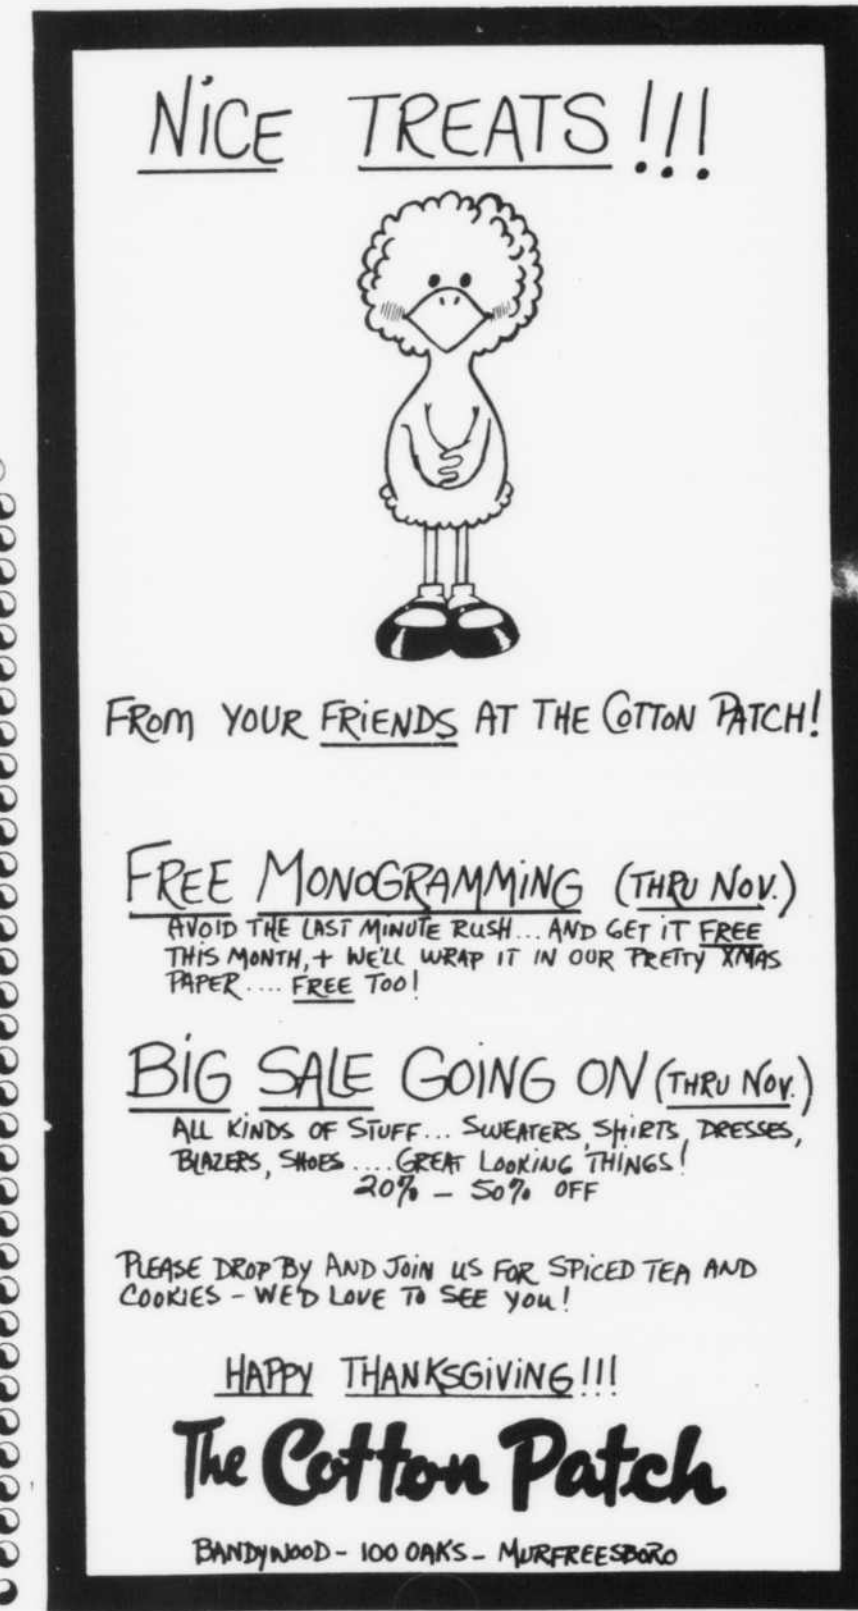 NiCE TREATS!!!
FROM YOUR FRiENDS AT THE COTTON PATCH!
FREE MONOGRAMMiNG (THRU NOV.)
AVOID THE LAST MINUTE RUSH... AND GET iT FREE
THIS MONTH, + WE'LL WRAP IT IN OUR PRETTY XMAS
PAPER.... FREE TOO!
BiG SALE GOiNG ON (THRU NOV.)
ALL KiNDS OF STUFF... SWEATERS, SHIRTS, DRESSES,
BLAZERS, SHOES .... GREAT LOOKiNG THINGS!
20% - 50% OFF
PLEASE DROP BY AND JOiN US FOR SPiCED TEA AND
COOKiES - WE'D LOVE TO SEE YOU!
HAPPY THANKSGiViNG!!!
The Cotton Patch
BANDYWOOD - 100 OAKS - MURFREESBORO